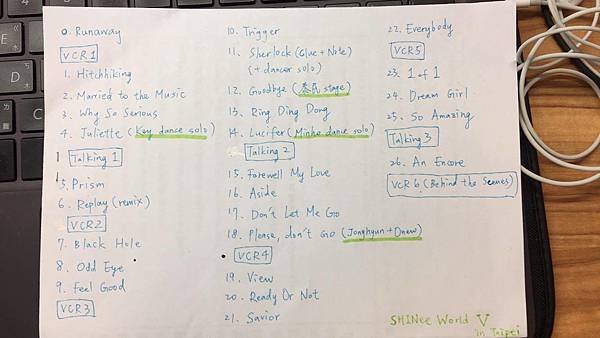 0. Runaway
VCR1
1. Hitchhiking
2. Married to the Music
3. Why So Serious
4. Juliette (Key dance solo)
Talking 1
5. Prism
6. Replay (remix)
VCR2
7. Black Hole
8. Odd Eye
9. Feel Good
VCR3
10. Trigger
11. Sherlock (Clue + Note)
(+ dancer solo)
12. Goodbye (泰民 stage)
13. Ring Ding Dong
14. Lucifer (Minho dance solo)
Talking 2
15. Farewell My Love
16. Aside
17. Don't Let Me Go
18. Please, don't go (Jonghyun + Onew)
VCR4
19. View
20. Ready Or Not
21. Savior
22. Everybody
VCR5
23. 1 of 1
24. Dream Girl
25. So Amazing
Talking 3
26. An Encore
VCR 6 (Behind the Scenes)
SHINee World V
in Taipei